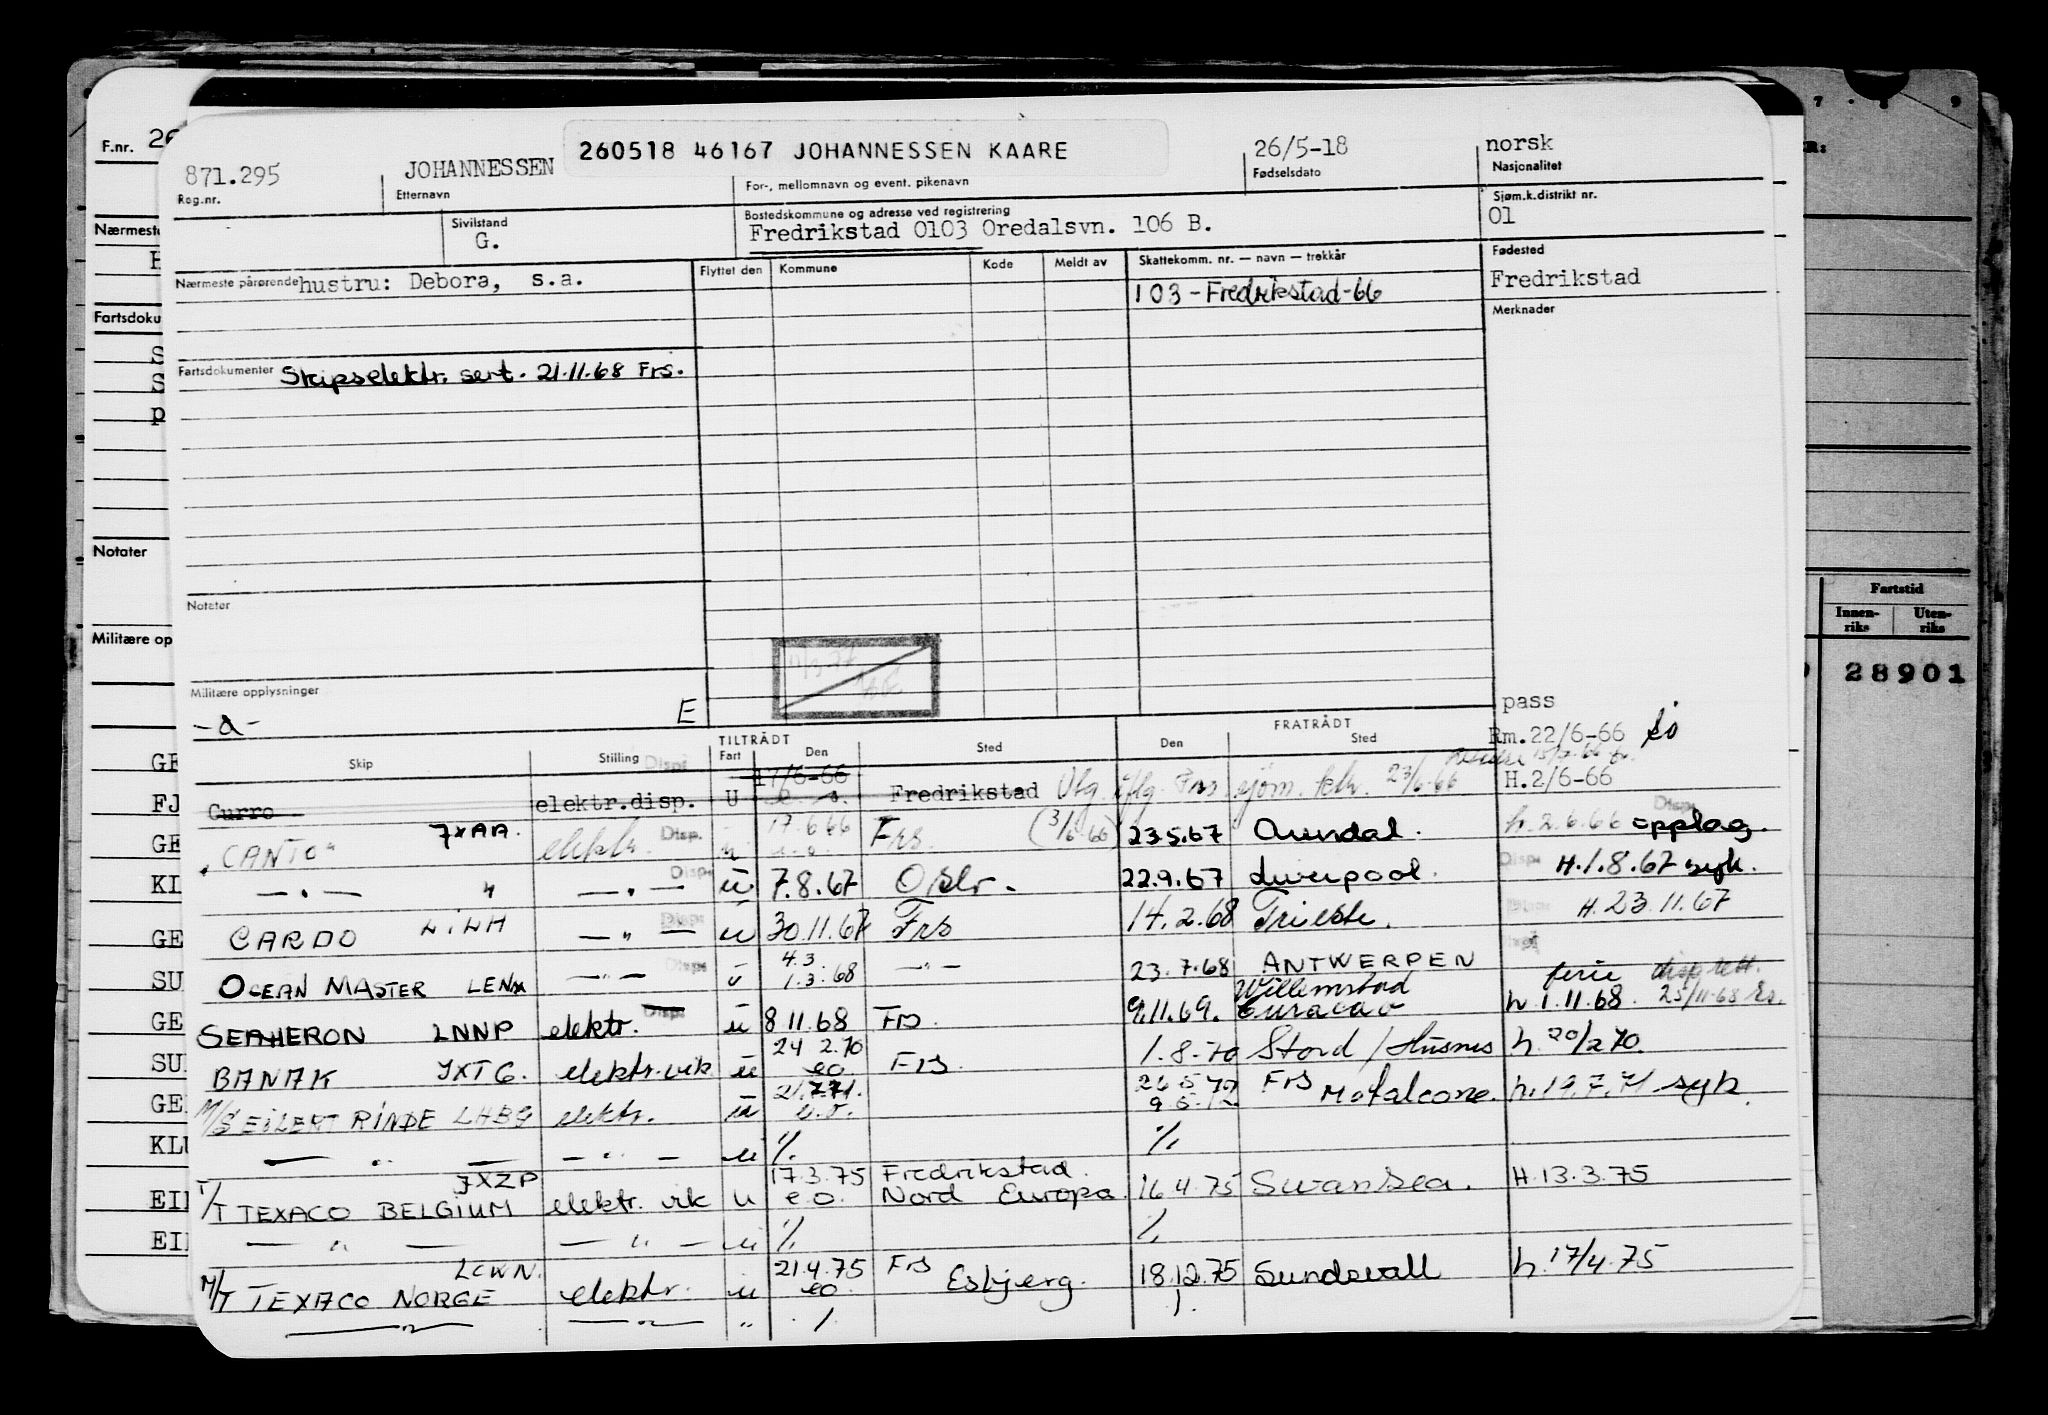 F.nr. 26
871.295 JOHANNESSEN 260518 46167 JOHANNESSEN KAARE 26/5-18 norsk
Reg.nr. Etternavn For-, mellomnavn og event. pikenavn Fødselsdato Nasjonalitet
Sivilstand Bostedskommune og adresse ved registrering Sjøm.k.distrikt nr.
G. Fredrikstad 0103 Oredalsvn. 106 B. 01
Nærmeste pårørende hustru: Debora, s.a. Flyttet den Kommune Kode Meldt av Skattekomm. nr. — navn — trekkår Fødested
103-Fredrikstad-66 Fredrikstad
Merknader
Fartsdokumenter Skipselektr. sert. 21.11.68 Frs.
Notater
Militære opplysninger
-a- E
pass
Rm.22/6-66
TILTRÅDT FRATRÅDT
Skip Stilling Fart Den Sted Den Sted
Disp: 17/6-66 23/6-66 H.2/6-66
Curro elektr.disp. U e.o. Fredrikstad
"CANTO" JXAA. elektr. Disp. u 17.6.66 e.o. Frs. (3/6-66) 23.5.67 Arendal. h.2.6.66 opplag. Disp:
— " — " — " — Disp: u 7.8.67 Oslo. 22.9.67 Liverpool. Disp: H.1.8.67 syk.
CARDO LILH — " — Disp: u 30.11.67 Frs 14.2.68 Trieste. H.23.11.67
OCEAN MASTER LENM — " — Disp: u 4.3 1.3.68 — " — 23.7.68 ANTWERPEN ferie
SEAHERON LNNP elektr. Disp: u 8 11.68 Frs. 9.11.69. Willemstad Curacao h 1.11.68. 25/11-68
BANAK JXTG. elektr.vik u 24 2.70 eo. Frs. 1.8-70 Stord/Husnes h. 20/2 70.
M/S EILERT RINDE LHBG elektr. u 21.7.71. u.o. 26 5 72 9 5.72 Frs Mofalcone. h.19.7.71 syk.
— " — — " — u ./. ./.
T/T TEXACO BELGIUM JXZP elektr. vik u 17.3.75 e.o. Fredrikstad. Nord Europa. 16.4.75 Swansea. H.13.3.75
— " — — " — u ./. ./.
M/T TEXACO NORGE LCWN. elektr. u 21.4.75 eo. Frs Esbjerg. 18.12.75 Sundsvall h.17/4.75
— " — — " — " ./. ./.
Nærmeste
Fartsdoku
Notater
Militære op
GE
FJ
GE
KL
GE
SU
GE
SU
GE
KLU
EI
EI
7 . 8 9
Fartstid
Innenriks Utenriks
28901